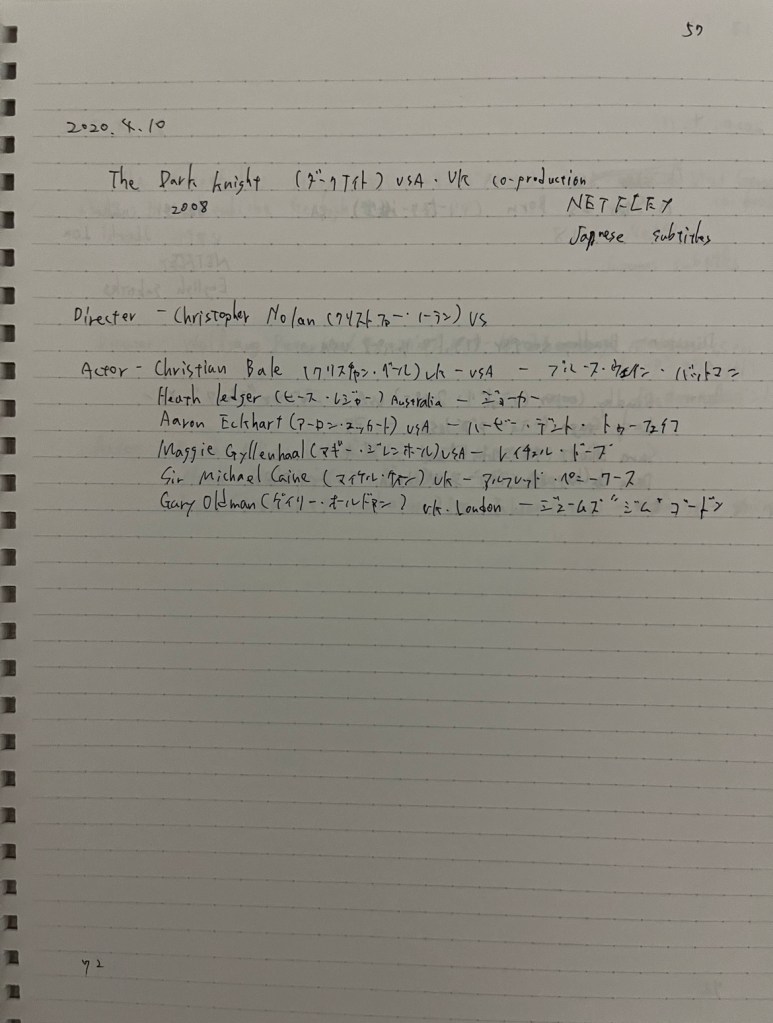 57
2020.4.10
The Dark knight (ダークナイト) USA・UK co-production
2008
NETFLEX
Japnese subtitles
Directer - Christopher Nolan (クリストファー・ノーラン) US
Actor - Christian Bale (クリスチャン・ベール) UK - USA - ブルース・ウェイン・バットマン
Heath ledger (ヒース・レジャー) Australia - ジョーカー
Aaron Eckhart (アーロン・エッカート) USA - ハービー・デント・トゥーフェイス
Maggie Gyllenhaal (マギー・ジレンホール) USA - レイチェル・ドーズ
Sir Michael Caine (マイケル・ケイン) UK - アルフレッド・ペニーワース
Gary Oldman (ゲイリー・オールドマン) UK. London - ジェームズ "ジム" ゴードン
72